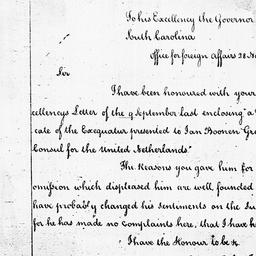 To his Excellency the Governor
South Carolina
Office for foreign Affairs 28 No
Sir
I have been honoured with your
cellencys Letter of the 9 September last enclosing "a
cate of the Exequatur presented to Jan Boonen Gra
Consul for the United Netherlands."
The Reasons you gave him for
omission which displeased him are well founded
have probably changed his Sentiments on the Su
for he has made no Complaints here, that I have h
I have the Honour to be &